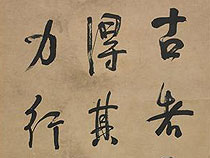 古者
得其
力行